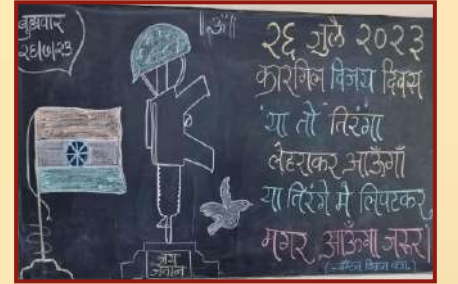 बुधवार
२६।७।२३
॥ॐ॥
२६ जुलै २०२३
कारगिल विजय दिवस
'या तो तिरंगा
लेहराकर आऊँगाँ
या तिरंगे मे लिपटकर
मगर, आऊँगा जरूर
जय
जवान